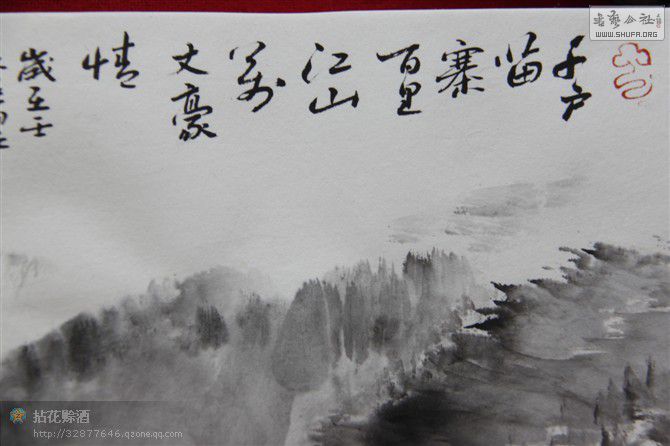 千户
苗
寨
百里
江山
萬
丈豪
情
歲在壬
書藝公社
WWW.SHUFA.ORG
拈花赊酒
http://32877646.qzone.qq.com